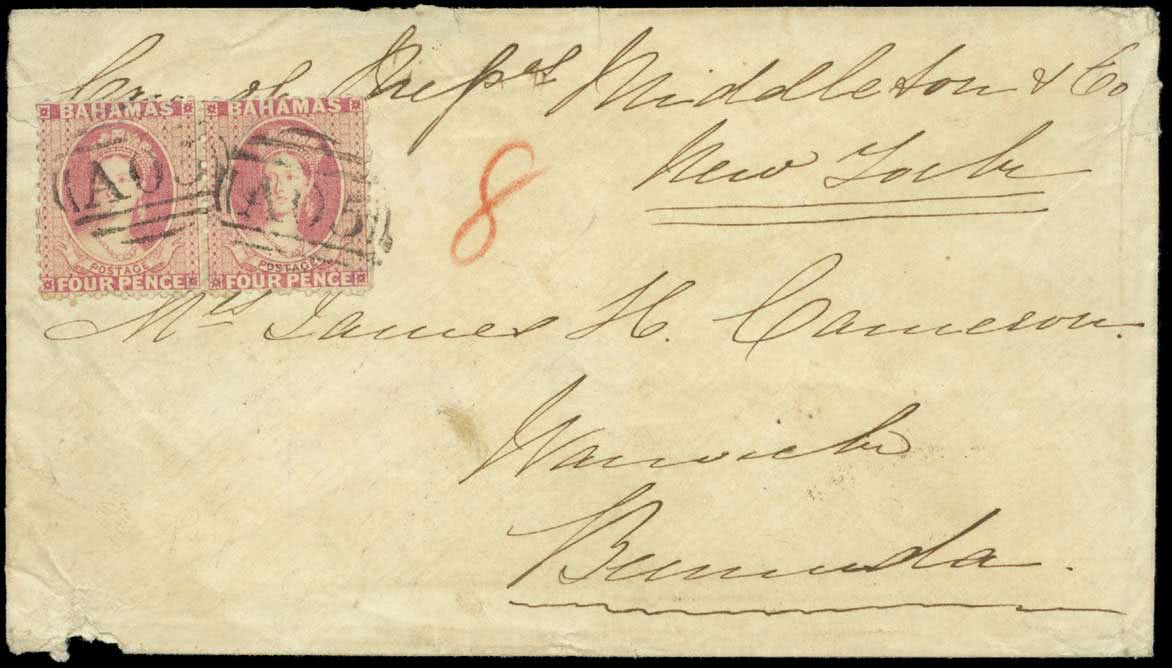 Care of Mesrs Middleton & Co
New York
BAHAMAS BAHAMAS
A05 A05
POSTAGE POSTAGE
FOUR PENCE FOUR PENCE
8
Mrs James H. Cameron.
Warwick
Bermuda.